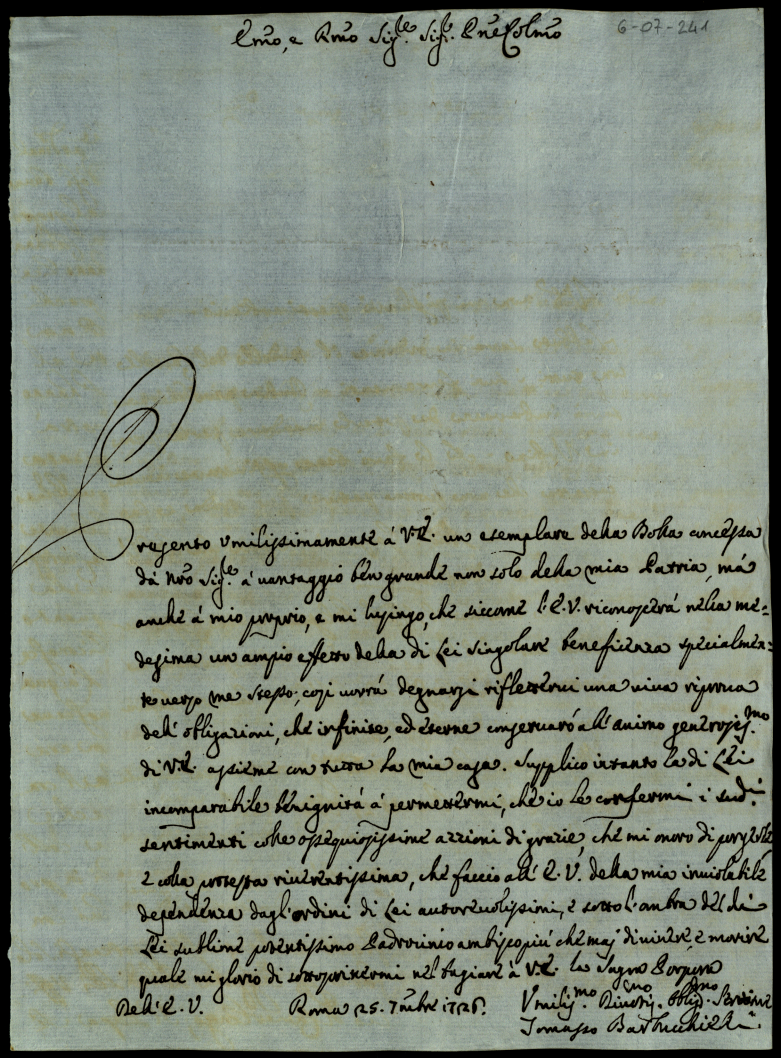 6-07-241
Emo, e Rmo Sig.re Sig.re Pne Colmo
Presento umilissimamente à V.E. un esemplare della Bolla concessa
dà Nrõ Sig.re à vantaggio ben grande non solo della mia Patria, mà
anche à mio proprio, e mi lusingo, che siccome l'E.V. riconoscerà nella me=
desima un ampio effetto della di Lei singolare beneficienza specialmen=
te verso me stesso; così vorrà degnarsi rifletterui una viva riprova
dell'obligazioni, che infinite, ed eterne conservarò all'animo generosiss.mo
di V.E. assieme con tutta la mia casa. Supplico intanto la di Lei
incomparabile benignità à permettermi, che io le confermi i sud.i
sentimenti colle ossequiosissime azzioni di grazie, che mi onoro di porgerle
e colla protesta riverentissima, che faccio all'E.V. della mia inviolabile
dependenza dagl'ordini di Lei autorevolissimi, e sotto l'ombra del di
Lei sublime potentissimo Padrocinio ambisco più che maj di vivere, e morire
quale mi glorio di sottoscrivermi nel bagiare à V.E. la Sagra Porpora
Dell'E.V. Roma 25. 7mbre 1726.
Umiliss.mo Divotiss.mo Oblig.mo Servitore
Tomasso